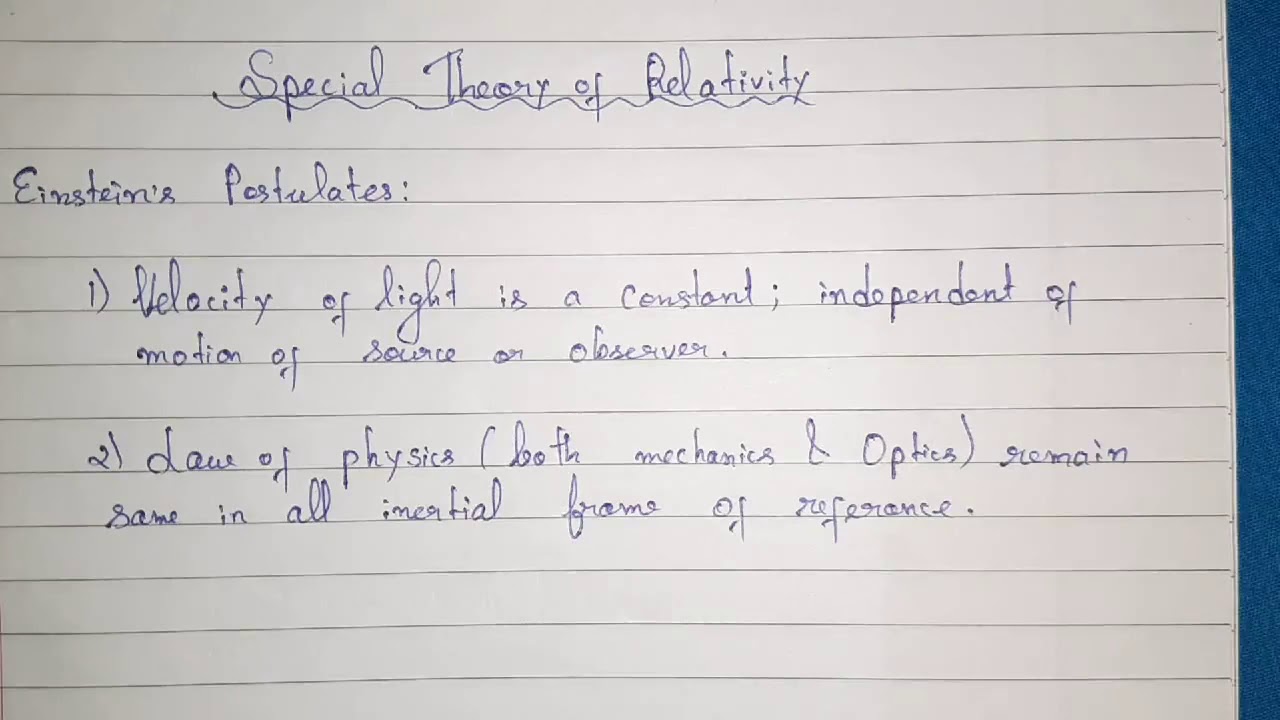 Special Theory of Relativity
Einstein's Postulates:
1) Velocity of light is a constant; independent of
motion of source or observer.
2) Law of physics (both mechanics & Optics) remain
same in all inertial frame of referance.